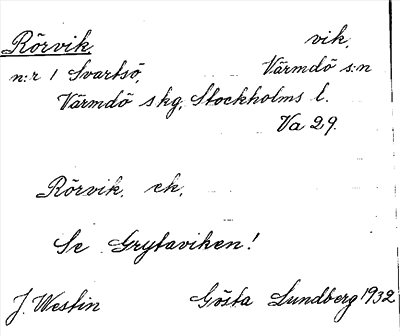 Rörvik vik,
n:r 1 Svartsö, Värmdö s:n
Värmdö skg, Stockholms l.
Va 29.
Rörvik. ek,
Se Grytaviken!
J. Westin Gösta Lundberg 1932